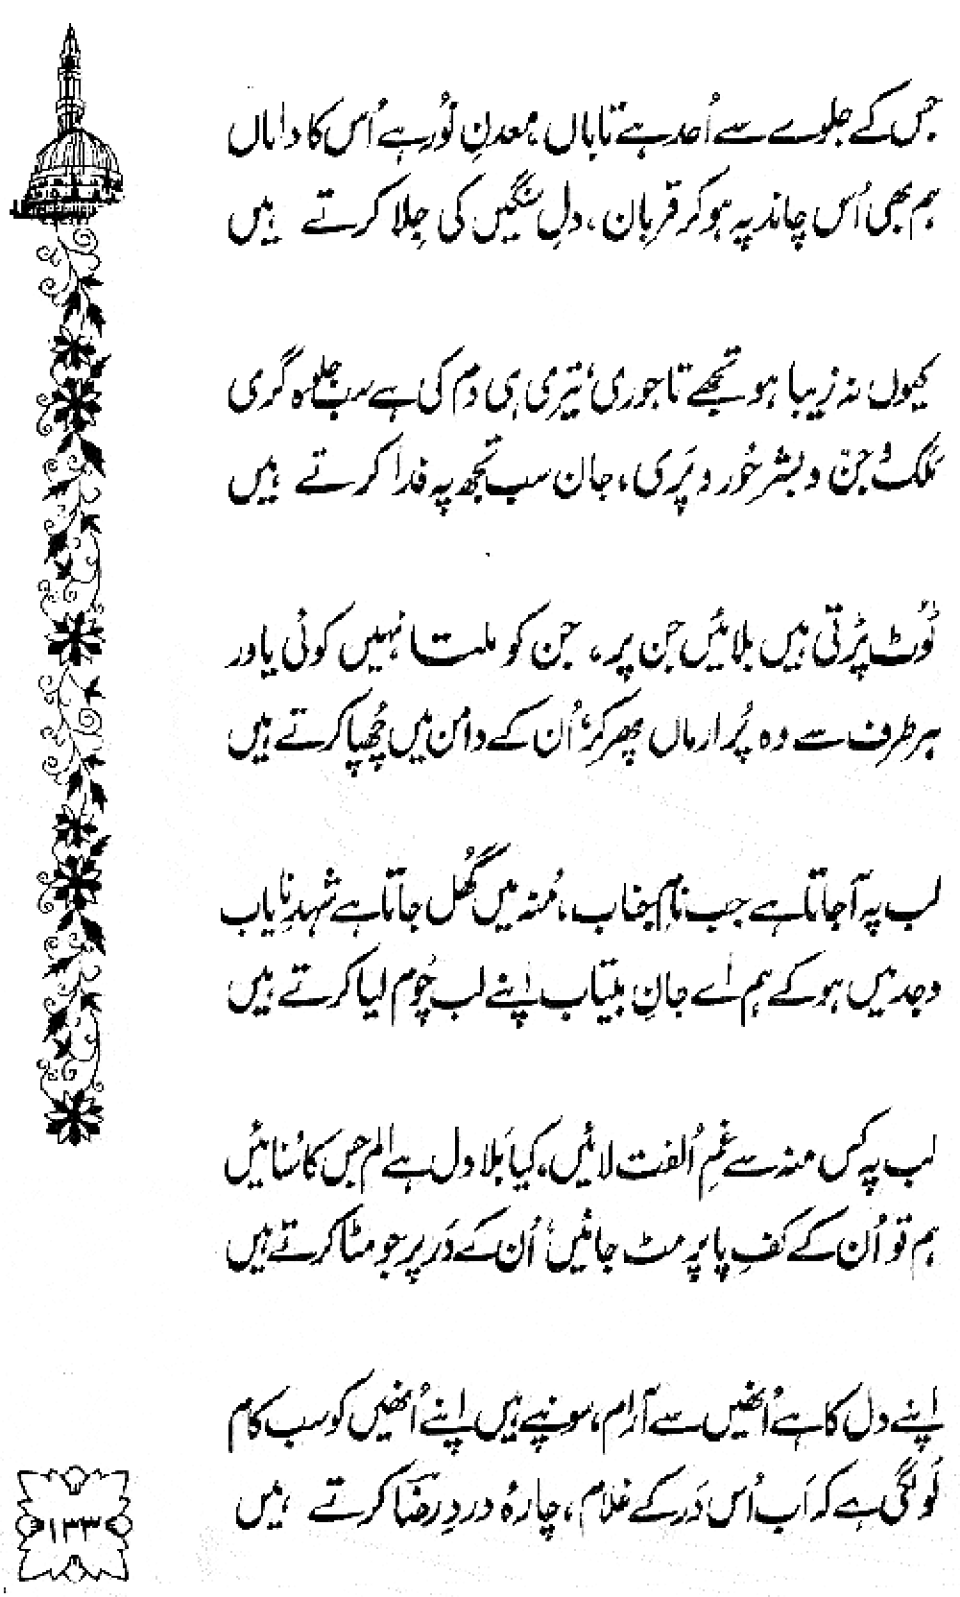 جس کے جلوے سے اُحد ہے تاباں، معدنِ نُور ہے اُس کا داماں
ہم بھی اُس چاند پہ ہو کر قربان، دلِ سنگیں کی جِلا کرتے ہیں
کیوں نہ زیبا ہو تجھے تاجوری، تیری ہی دم کی ہے سب جلوہ گری
مَلک و جنّ و بشر حُور و پَری، جان سب تجھ پہ فدا کرتے ہیں
ٹُوٹ پڑتی ہیں بلائیں جن پر، جن کو ملتا نہیں کوئی یاور
ہر طرف سے وہ پُر ارماں پھر کر، اُن کے دامن میں چُھپا کرتے ہیں
لب پہ آ جاتا ہے جب نامِ جناب، مُنہ میں گُھل جاتا ہے شہدِ نایاب
وجد میں ہو کے ہم اَے جانِ بیتاب اپنے لب چُوم لیا کرتے ہیں
لب پہ کس منہ سے غمِ اُلفت لائیں، کیا بَلا دل ہے اَلم جس کا سُنائیں
ہم تو اُن کے کفِ پا پر مٹ جائیں، اُن کے دَر پر جو مٹا کرتے ہیں
اپنے دل کا ہے اُنھیں سے آرام، سونپے ہیں اپنے اُنھیں کو سب کام
لَو لگی ہے کہ اَب اُس دَر کے غلام، چارۂ دردِ رضؔا کرتے ہیں
۱۳۳